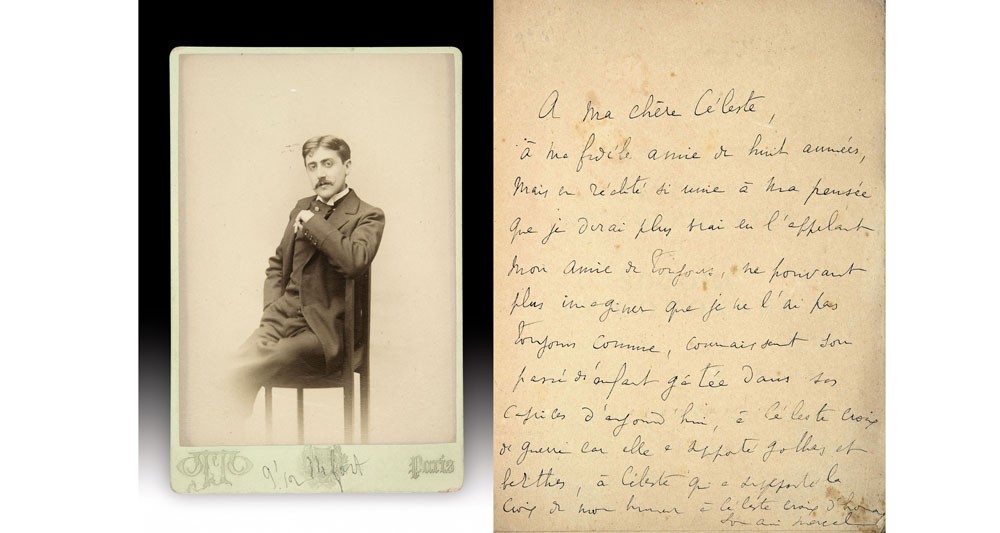 OTTO
Paris
A ma chère Céleste,
à ma fidèle amie de huit années,
Mais en réalité si unie à ma pensée
que je dirai plus vrai en l'appelant
mon amie de toujours, ne pouvant
plus imaginer que je ne l'ai pas
toujours connue, connaissant son
passé d'enfant gâtée dans ses
caprices d'aujourd'hui, à Céleste croix
de guerre car elle a supporté gothas et
berthas, à Céleste qui a supporté la
croix de mon humeur à Céleste croix d'honneur
Son ami Marcel